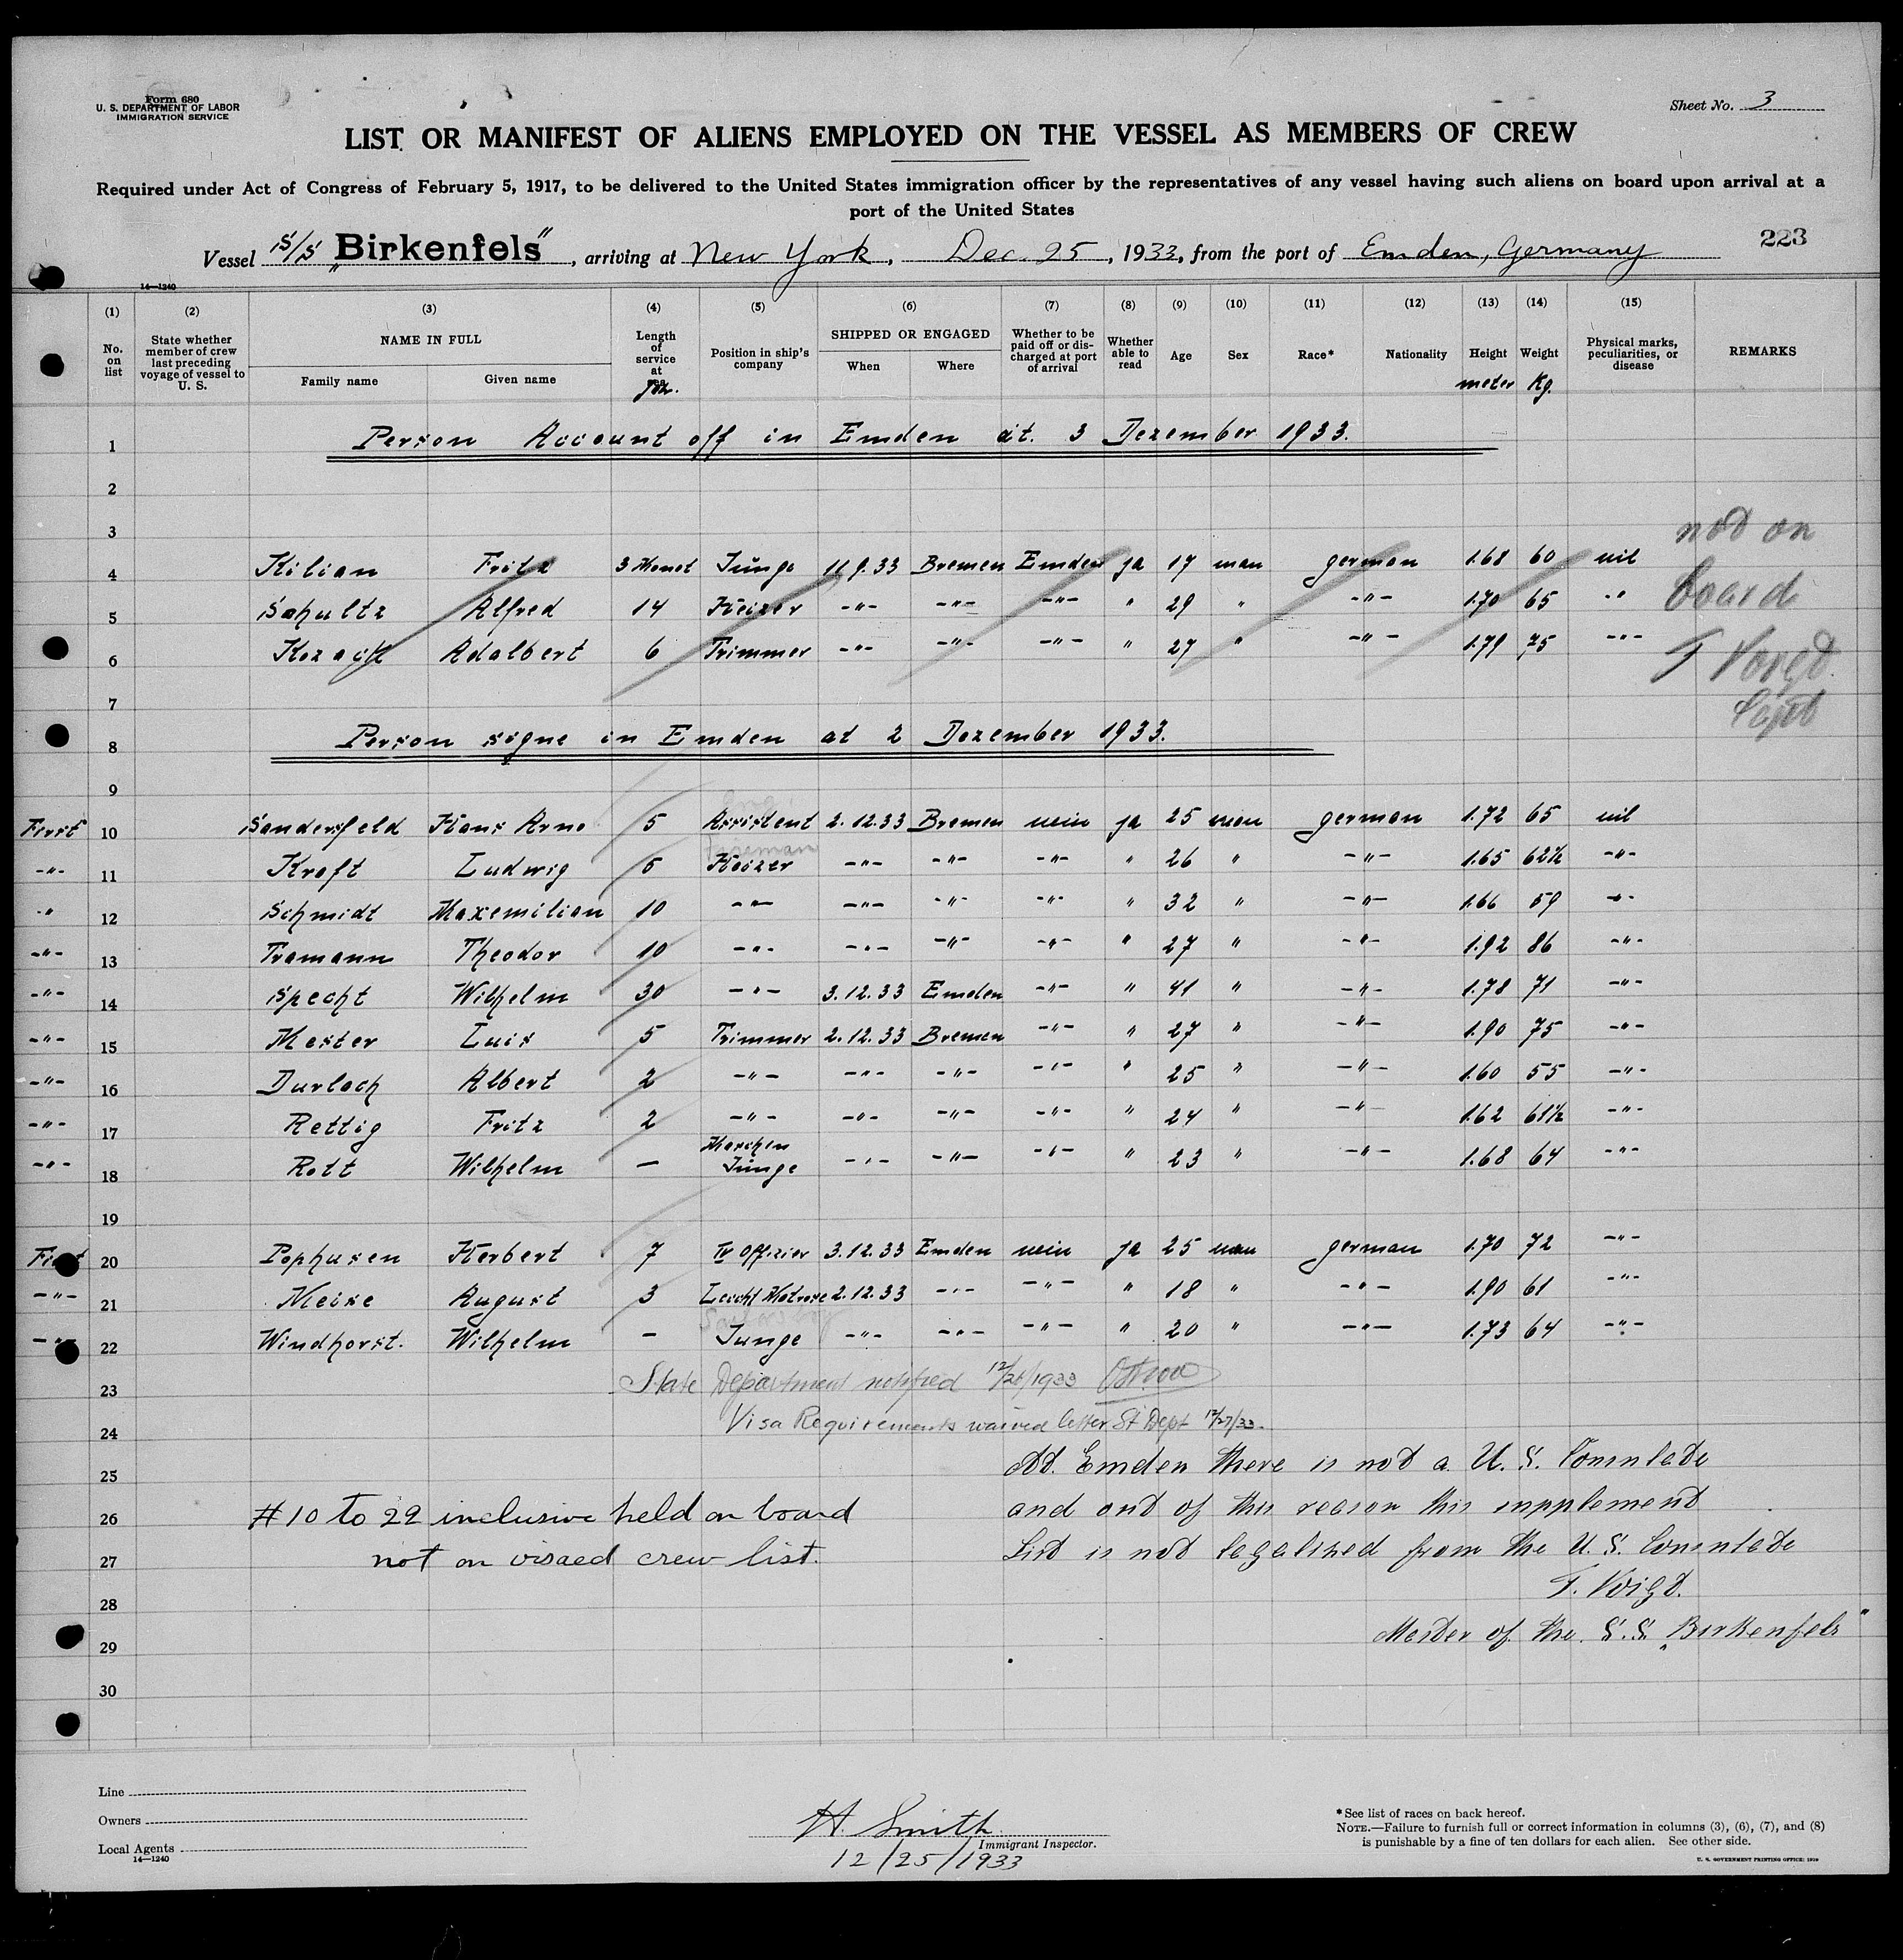 Form 680
U. S. DEPARTMENT OF LABOR
IMMIGRATION SERVICE
Sheet No. 3
LIST OR MANIFEST OF ALIENS EMPLOYED ON THE VESSEL AS MEMBERS OF CREW
Required under Act of Congress of February 5, 1917, to be delivered to the United States immigration officer by the representatives of any vessel having such aliens on board upon arrival at a
port of the United States
223
Vessel S/S „Birkenfels", arriving at New York, Dec. 25, 1933, from the port of Emden, Germany
14—1240
(1) (2) (3) (4) (5) (6) (7) (8) (9) (10) (11) (12) (13) (14) (15)
No. on list
State whether member of crew last preceding voyage of vessel to U. S.
NAME IN FULL
Family name Given name
Length of service at
Position in ship's company
SHIPPED OR ENGAGED
When Where
Whether to be paid off or discharged at port of arrival
Whether able to read
Age
Sex
Race*
Nationality
Height meter
Weight Kg.
Physical marks, peculiarities, or disease
REMARKS
1 Person Account off in Emden at. 3 Dezember 1933.
2
3
not on
4 Kilian Fritz 3 Monat Junge 11.9.33 Bremen Emden ja 17 man german 1.68 60 nil
board
5 Schultz Alfred 14 Heizer -"- -"- -"- " 29 " -"- 1.70 65 -"-
6 Kozack Adalbert 6 Trimmer -"- -"- -"- " 27 " -"- 1.79 75 -"-
F Voigt.
7
Capt
8 Person signe in Emden at 2 Dezember 1933.
9
First 10 Sandersfeld Hans Arno 5 Assistent 2.12.33 Bremen nein ja 25 man german 1.72 65 nil
Fireman
-"- 11 Kraft Ludwig 5 Heizer -"- -"- -"- " 26 " -"- 1.65 62½ -"-
-"- 12 Schmidt Maxemilian 10 -"- -"- -"- -"- " 32 " -"- 1.66 59 -"-
-"- 13 Tramann Theodor 10 -"- -"- -"- -"- " 27 " -"- 1.92 86 -"-
-"- 14 Specht Wilhelm 30 -"- 3.12.33 Emden -"- " 41 " -"- 1.78 71 -"-
-"- 15 Mester Luis 5 Trimmer 2.12.33 Bremen -"- " 27 " -"- 1.90 75 -"-
-"- 16 Durlach Albert 2 -"- -"- -"- -"- " 25 " -"- 1.60 55 -"-
-"- 17 Rettig Fritz 2 -"- -"- -"- -"- " 24 " -"- 1.62 61½ -"-
-"- 18 Rott Wilhelm — Maschin Junge -"- -"- -"- " 23 " -"- 1.68 64 -"-
19
First 20 Pophusen Herbert 7 IV Offizier 3.12.33 Emden nein ja 25 man german 1.70 72 -"-
-"- 21 Meise August 3 Leicht Matrose 2.12.33 -"- -"- " 18 " -"- 1.90 61 -"-
Sailorsboy
-"- 22 Windhorst. Wilhelm — Junge -"- -"- -"- " 20 " -"- 1.73 64 -"-
23 State Department notified 12/26/1933
24 Visa Requirements waived letter St Dept 12/27/33.
25 At. Emden there is not a U. S. Consulate
26 #10 to 22 inclusive held on board
and out of this reason this supplement
27 not on visaed crew list.
List is not legalised from the U. S. Consulate
28 F. Voigt.
29 Master of the S.S. „Birkenfels"
30
Line
Owners
Local Agents
14—1240
H. Smith
Immigrant Inspector.
12/25/1933
*See list of races on back hereof.
NOTE.—Failure to furnish full or correct information in columns (3), (6), (7), and (8)
is punishable by a fine of ten dollars for each alien. See other side.
U. S. GOVERNMENT PRINTING OFFICE: 1929